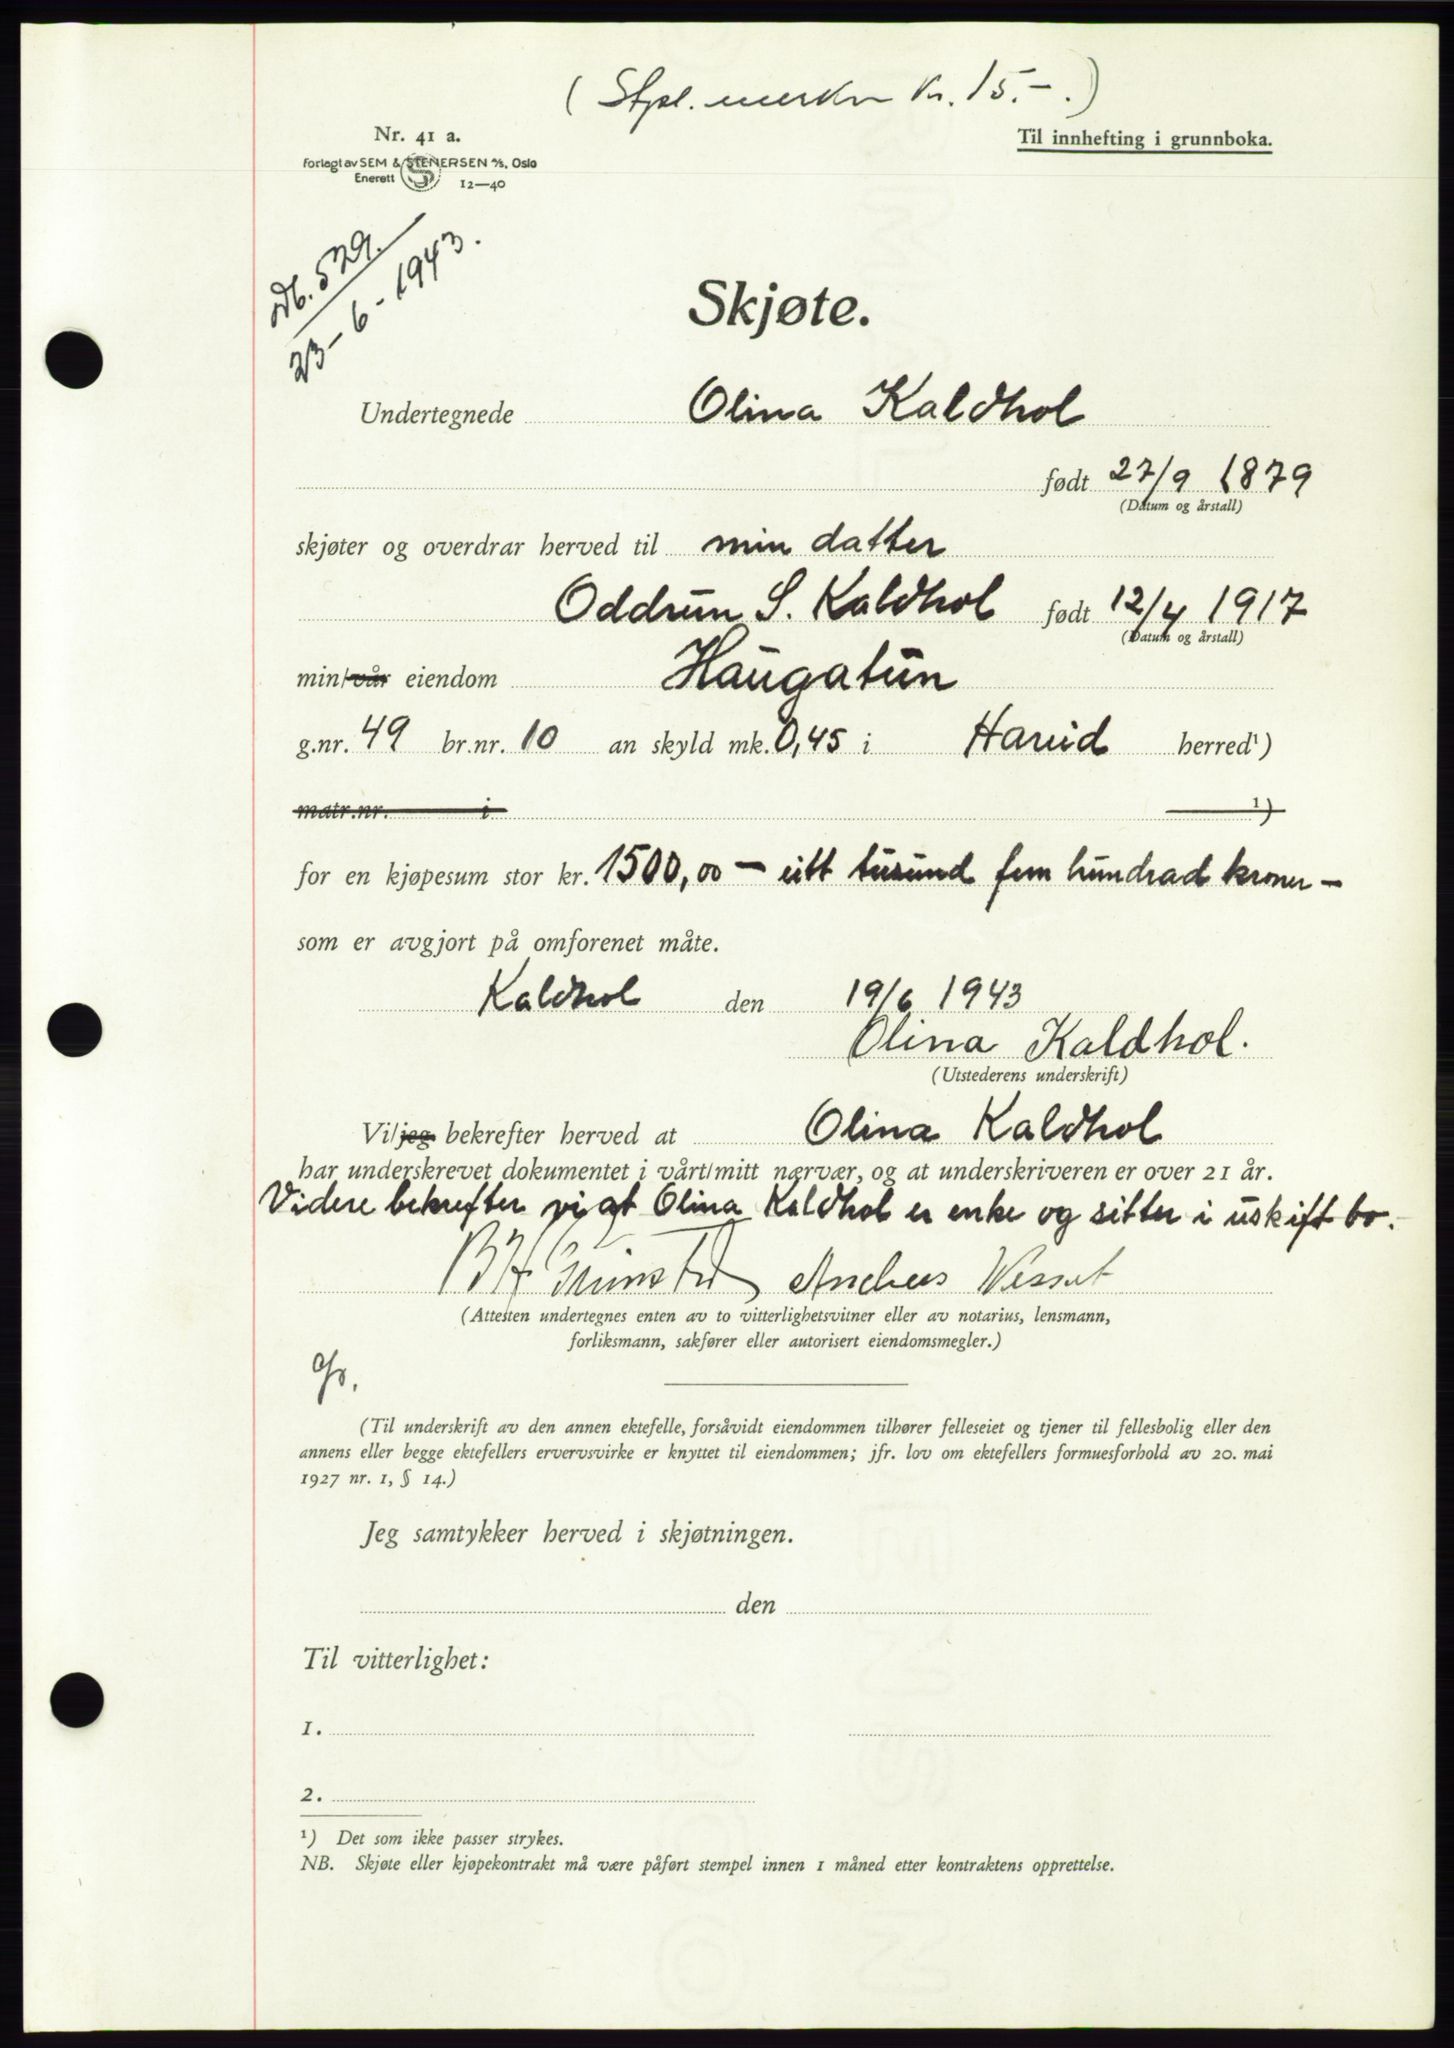 ( Stpl. merker kr. 15.-.)
Nr. 41 a.
Til innhefting i grunnboka.
Forlagt av SEM & STENERSEN A/S, Oslo
Enerett S 12—40
Db. 529.
23-6-1943.
Skjøte.
Undertegnede Olina Kaldhol
født 27/9 1879
(Datum og årstall)
skjøter og overdrar herved til min datter
Oddrun S. Kaldhol født 12/4 1917
(Datum og årstall)
min/vår eiendom Haugatun
g.nr. 49 br.nr. 10 an skyld mk. 0,45 i Hareid herred¹)
matr.nr. i ¹)
for en kjøpesum stor kr. 1500,00 — eitt tusund fem hundrad kroner —
som er avgjort på omforenet måte.
Kaldhol den 19/6 1943
Olina Kaldhol.
(Utstederens underskrift)
Vi/jeg bekrefter herved at Olina Kaldhol
har underskrevet dokumentet i vårt/mitt nærvær, og at underskriveren er over 21 år.
Videre bekrefter vi at Olina Kaldhol er enke og sitter i uskift bo.
B H Grimstad Andreas
(Attesten undertegnes enten av to vitterlighetsvitner eller av notarius, lensmann,
forliksmann, sakfører eller autorisert eiendomsmegler.)
(Til underskrift av den annen ektefelle, forsåvidt eiendommen tilhører felleseiet og tjener til fellesbolig eller den
annens eller begge ektefellers ervervsvirke er knyttet til eiendommen; jfr. lov om ektefellers formuesforhold av 20. mai
1927 nr. 1, § 14.)
Jeg samtykker herved i skjøtningen.
den
Til vitterlighet:
1.
2.
¹) Det som ikke passer strykes.
NB. Skjøte eller kjøpekontrakt må være påført stempel innen 1 måned etter kontraktens opprettelse.